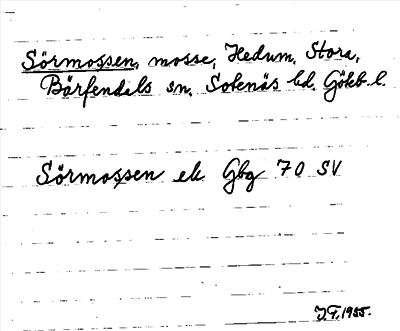 Sörmossen, mosse, Hedum, Stora,
Bärfendals sn, Sotenäs hd. Göteb. l.
Sörmossen ek Gbg 70 SV
J.F. 1955.